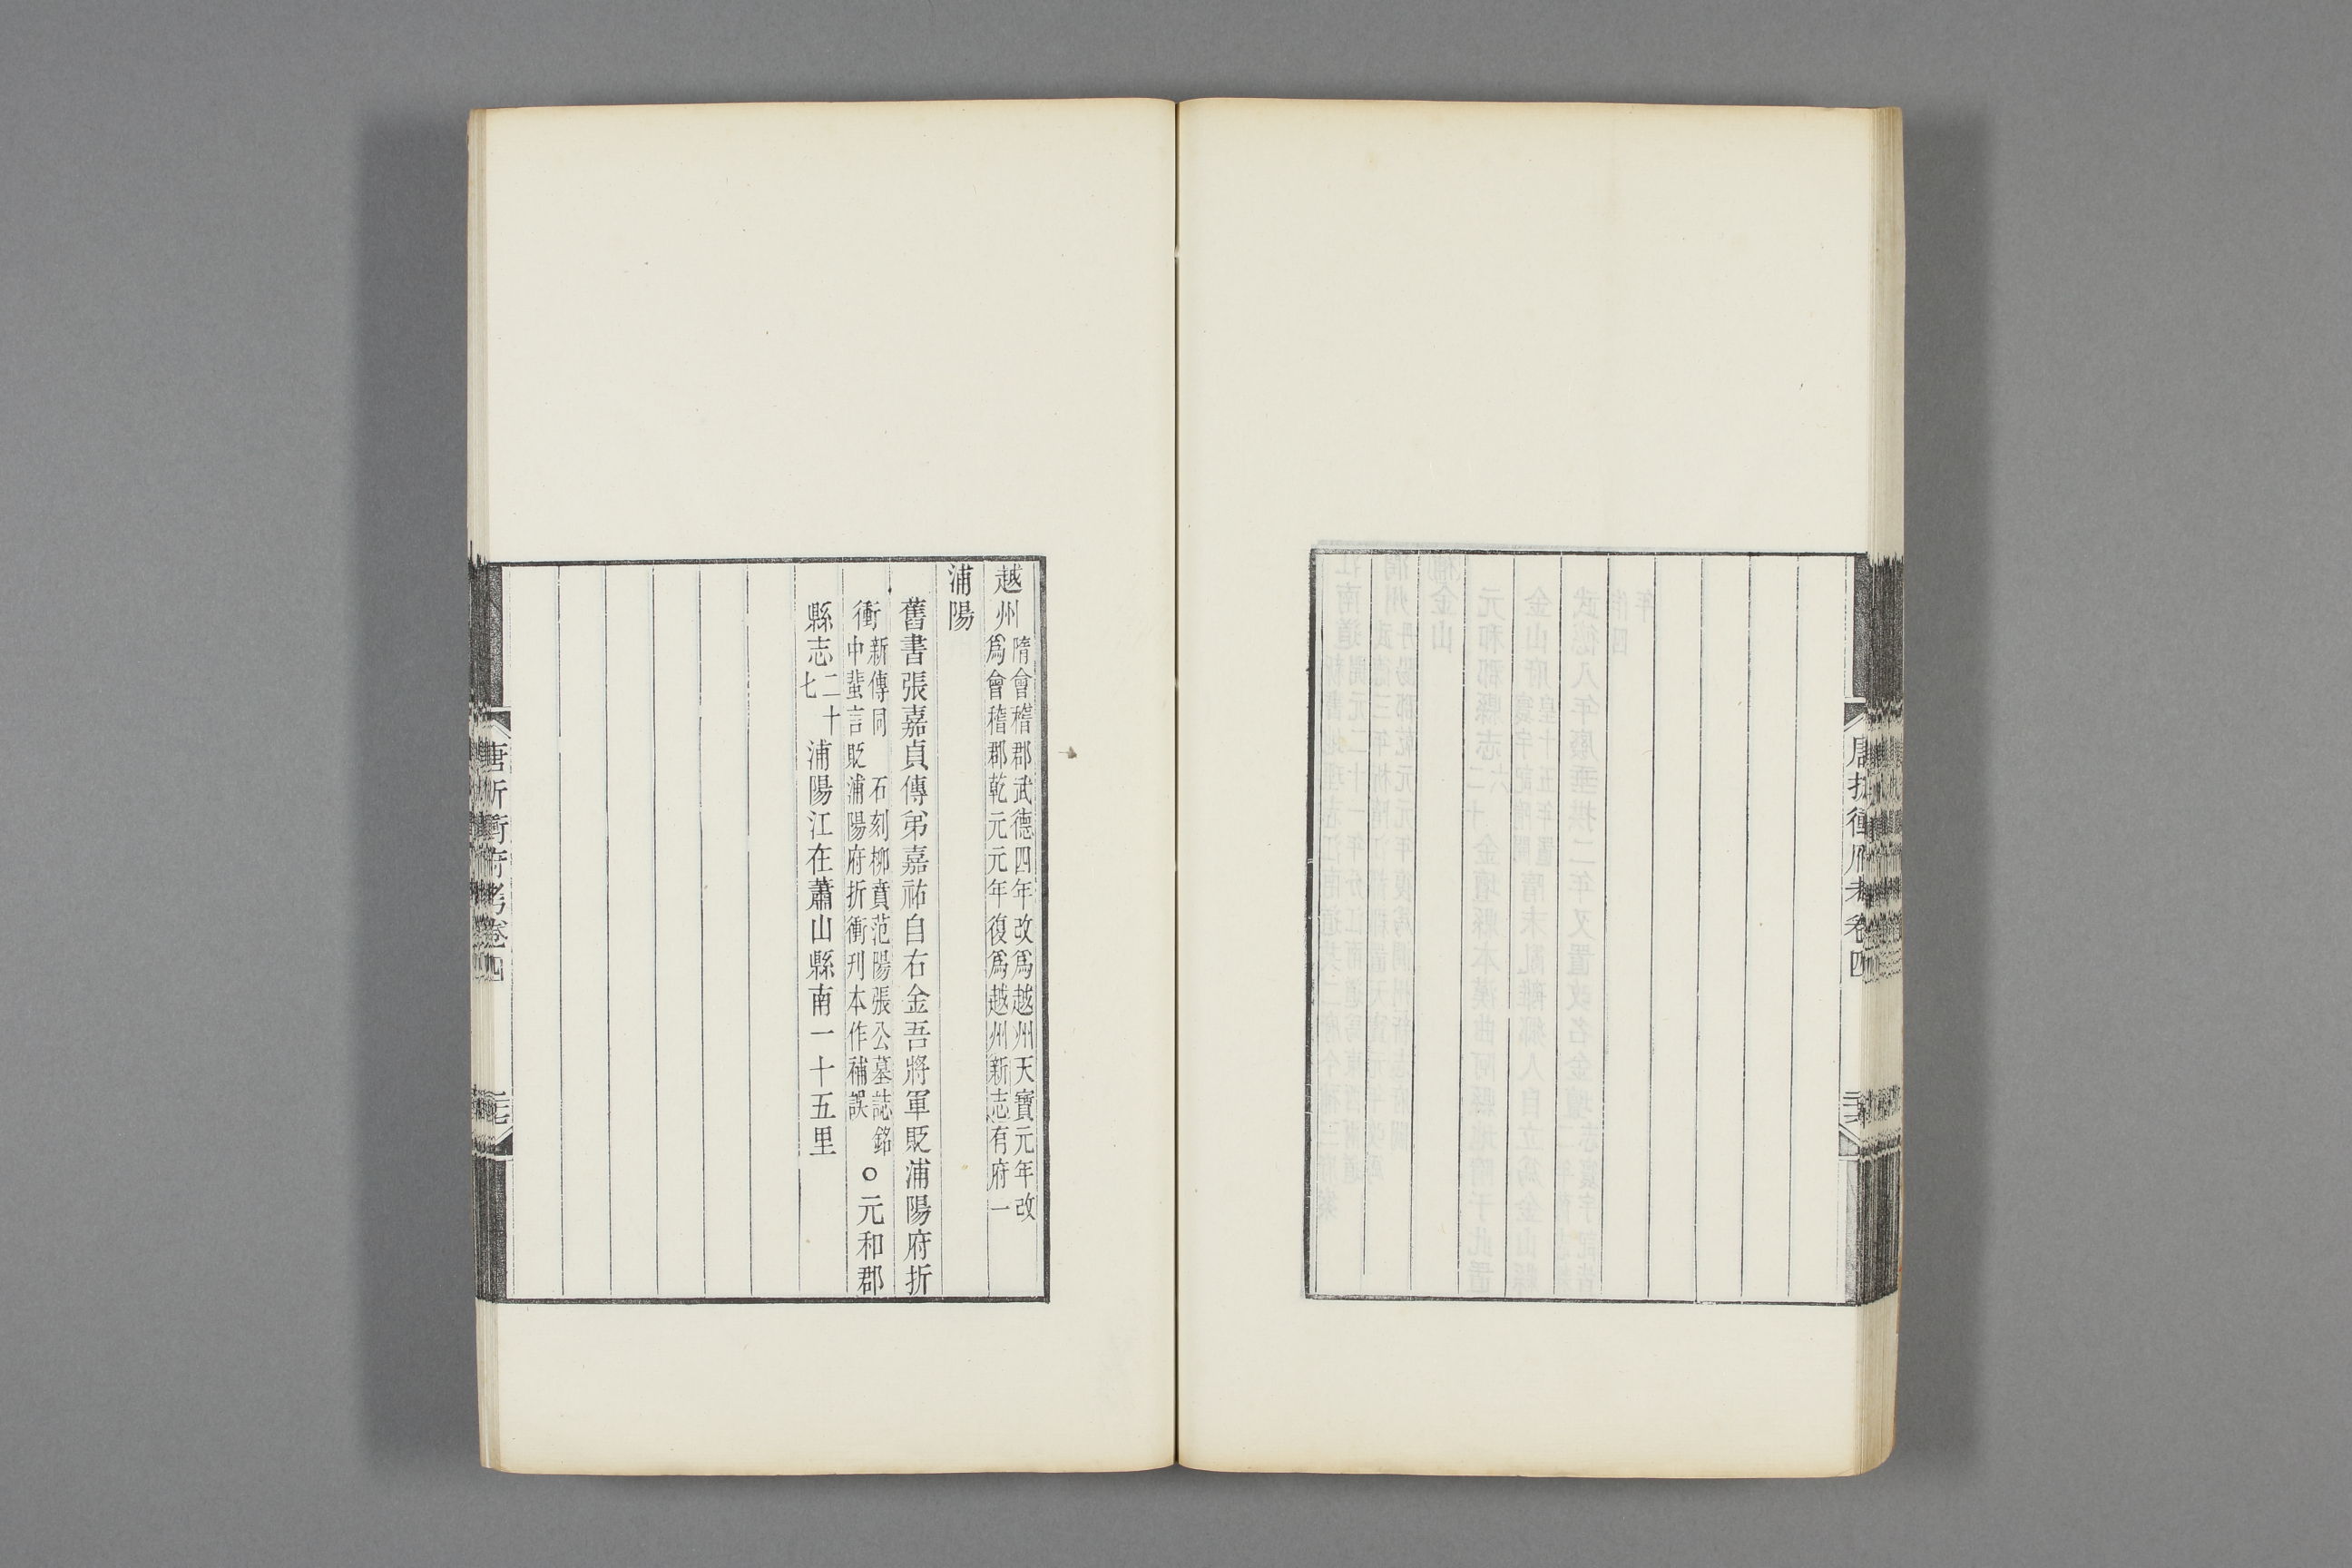 唐折衝府考卷四
越州隋會稽郡武德四年改爲越州天寶元年改
爲會稽郡乾元元年復爲越州新志有府一
浦陽
舊書張嘉貞傳弟嘉祐自右金吾將軍貶浦陽府折
衝新傳同 石刻柳賁范陽張公墓誌銘
中蜚言貶浦陽府折衝刊本作補誤
○元和郡
縣志二十
七
浦陽江在蕭山縣南一十五里
唐折衝府考卷四